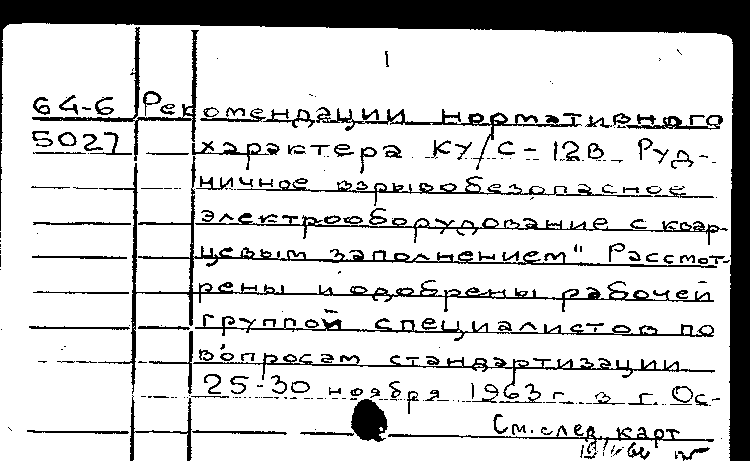 1
64-6 Рекомендации нормативного
5027 характера КУ/С-12В Руд-
ничное взрывобезопасное
электрооборудование с квар-
цевым заполнением" Рассмот-
рены и одобрены рабочей
группой специалистов по
вопросам стандартизации
25-30 ноября 1963 г. в г. Ос-
См. след. карт